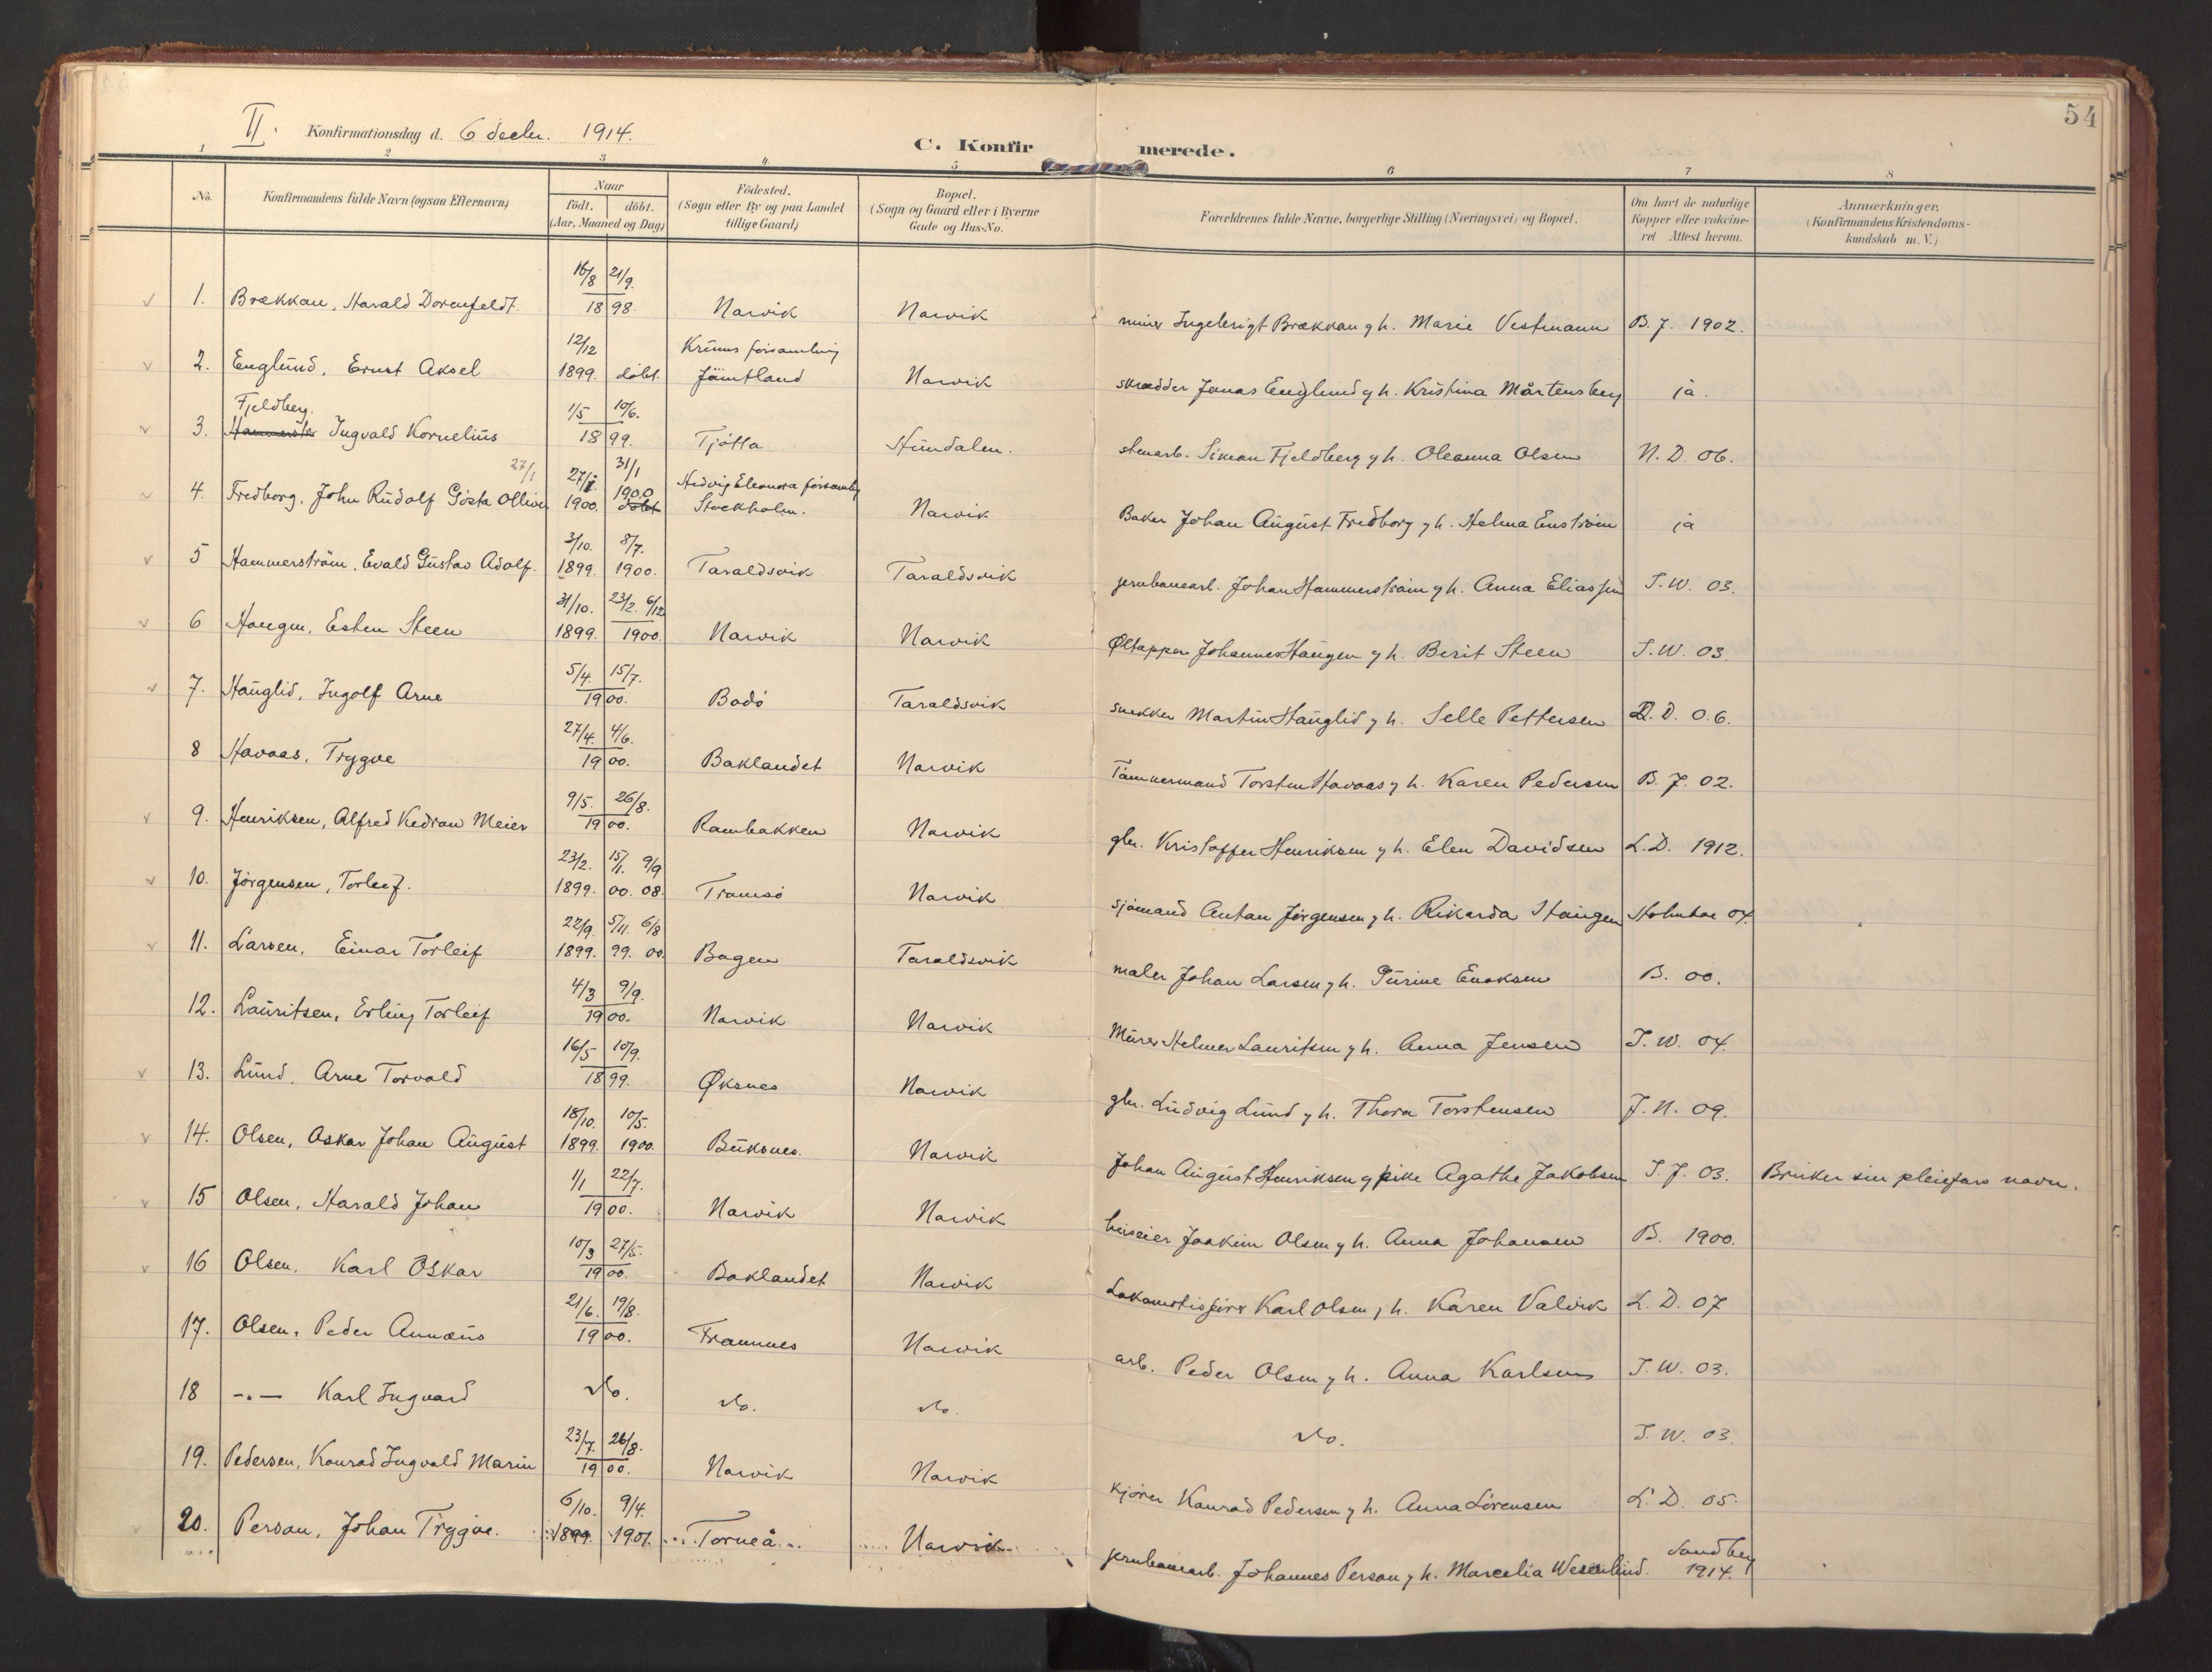 54
II. Konfirmationsdag d. 6 decbr. 1914.
C. Konfirmerede.
1 2 3 4 5 6 7 8
No. Konfirmandens fulde Navn (ogsaa Efternavn) Naar födt. döbt. (Aar, Maaned og Dag) Födested. (Sogn eller By og paa Landet tillige Gaard) Bopæl. (Sogn og Gaard eller i Byerne Gade og Hus-No. Forældrenes fulde Navne, borgerlige Stilling (Næringsvei) og Bopæl. Om havt de naturlige Kopper eller vakcineret Attest herom. Anmærkninger. (Konfirmandens Kristendomskundskab m. V.)
16/8 21/9.
1. Brækkan, Harald Dorenfeldt. 18 98. Narvik Narvik miner Ingebrigt Brækkan g h. Marie Vestmann B. J. 1902.
12/12 församling
2. Englund, Ernst Aksel 1899. döbt. Jämtland Narvik skrædder Jonas Englund g h. Kristina Mårtensberg ja.
Fjeldberg. 1/5 10/6.
3. Ingvald Kornelius 18 99. Tjötta Hundalen. stenarb. Simon Fjeldberg g h. Oleanna Olsen N. D. 06.
27/1 27/1. 31/1 1900 Hedvig Eleonora församling
4. Fredborg, John Rudolf Gösta Olliver 1900. döbt Stockholm. Narvik Baker Johan August Fredborg g h. Helma Enström ja
3/10. 8/7.
5 Hammerström, Evald Gustav Adolf. 1899. 1900. Taraldsvik Taraldsvik jernbanearb. Johan Hammerström g h. Anna Eliassen I. W. 03.
31/10. 23/2. 6/12
6 Haugen, Esten Steen 1899. 1900. Narvik Narvik Øltapper Johannes Haugen g h. Berit Steen I. W. 03.
5/4. 15/7.
7. Hauglid, Ingolf Arne 19 00. Bodö Taraldsvik snekker Martin Hauglid g h. Selle Pettersen D. D. 06.
27/4. 4/6.
8 Havaas, Trygve 19 00. Baklandet Narvik Tömmermand Torsten Havaas g h. Karen Pedersen B. J. 02.
9/5. 26/8.
9. Henriksen, Alfred Kedron Meier 19 00. Rambakken Narvik gbr. Kristoffer Henriksen g h. Elen Davidsen L. D. 1912.
23/2. 15/1. 9/9
10. Jörgensen, Torleif. 1899. 00. 08. Tromsö Narvik sjömand Anton Jörgensen g h. Rikarda Haugen Holmboe 04.
22/9. 5/11. 6/8
11. Larsen, Einar Torleif 1899. 99. 00. Bogen Taraldsvik maler Johan Larsen g h. Purine Enoksen B. 00.
4/3 9/9.
12. Lauritsen, Erling Torleif 19 00. Narvik Narvik Murer Helmer Lauritsen g h. Anna Jensen I. W. 04.
16/5 10/9.
13. Lund, Arne Torvald 18 99. Øksnes Narvik gbr. Ludvig Lund g h. Thora Torstensen J. N. 09.
18/10. 10/5.
14. Olsen, Oskar Johan August 1899. 1900. Buksnes. Narvik Johan August Henriksen g pike Agathe Jakobsen I. J. 03. Bruker sin pleiefars navn.
1/1 22/7.
15 Olsen, Harald Johan 19 00. Narvik Narvik huseier Joakim Olsen g h. Anna Johansen B. 1900.
10/3 27/5.
16 Olsen, Karl Oskar 19 00. Baklandet Narvik Lokomotivförer Karl Olsen g h. Karen Valvik L. D. 07
21/6. 19/8.
17. Olsen, Peder Annæus 19 00. Framnes Narvik arb. Peder Olsen g h. Anna Karlsen I. W. 03.
18 -.- Karl Ingvard do. do. do. do. I. W. 03.
23/7. 26/8.
19. Pedersen, Konrad Ingvald Marin 19 00. Narvik Narvik kjörer Konrad Pedersen g h. Anna Sörensen L. D. 05.
6/10. 9/4.
20. Person, Johan Trygve. 1899. 1901. Torneå Narvik jernbanearb. Johannes Person g h. Marcelia Westerlund. Sandberg 1914.